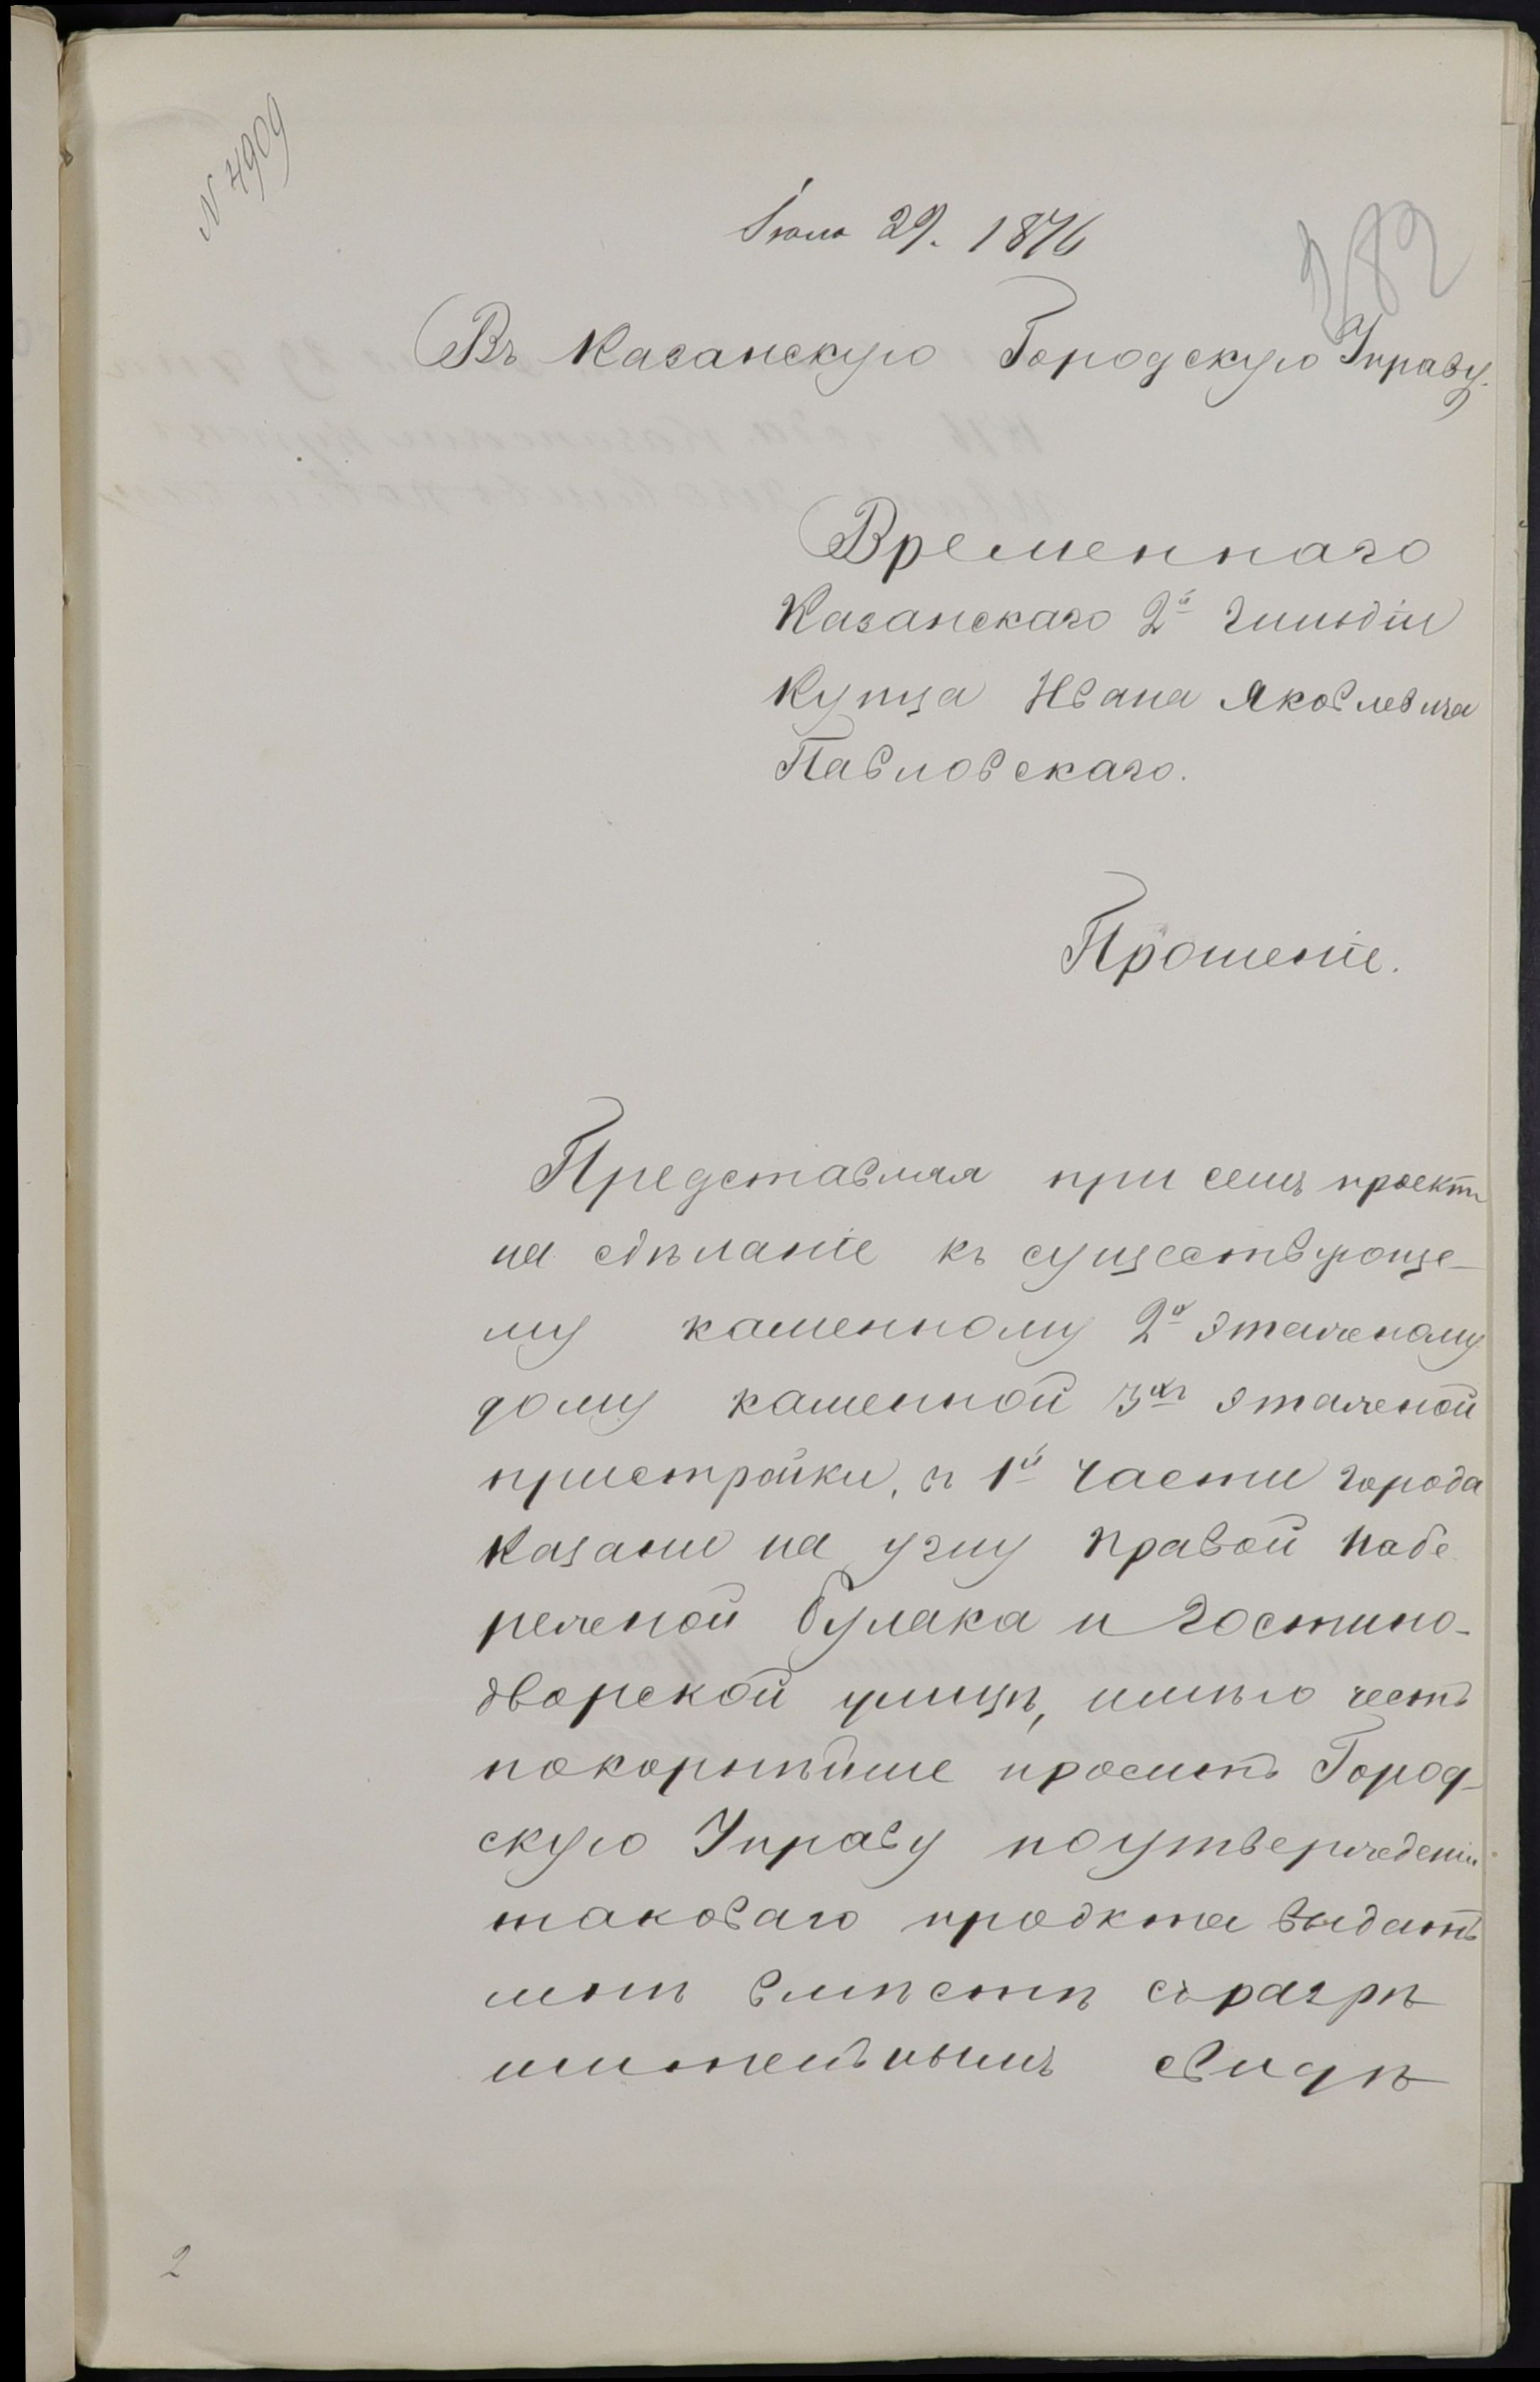 N 4909
Іюля 29. 1876
382
Въ Казанскую Городскую Управу.
Временнаго
Казанскаго 2й гильдіи
Купца Ивана Яковлевича
Павловскаго.
Прошеніе.
Представляя при семъ проектъ
на сдѣланіе къ существующе-
му каменному 2й этажному
дому каменной 3хъ этажной
пристройки, въ 1й части города
Казани на углу правой набе
режной булака и гостино-
дворской улицѣ, имѣю честь
покорнѣйше просить Город-
скую Управу поутвержденіи
таковаго проэкта выдать
мнѣ вмѣстѣ съ разрѣ
шительнымъ свидѣ
2